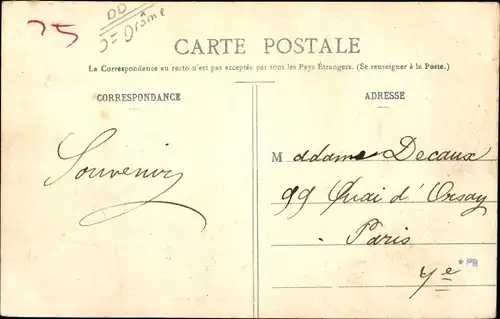 75
DD
D= Drôme
CARTE POSTALE
La Correspondance au recto n'est pas acceptée par tous les Pays Étrangers. (Se renseigner à la Poste.)
CORRESPONDANCE
ADRESSE
Souvenir
Madame Decaux
99 Quai d'Orsay
Paris
7e
*PB